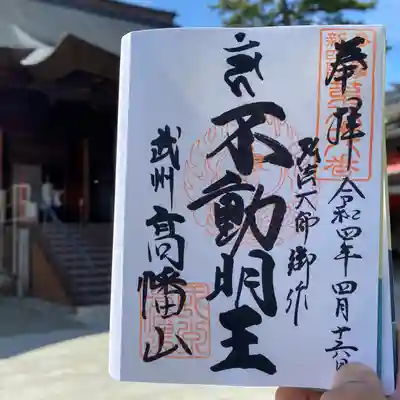 奉拝
令和四年四月十六日
弘法大師御作
不動明王
武州
高幡山